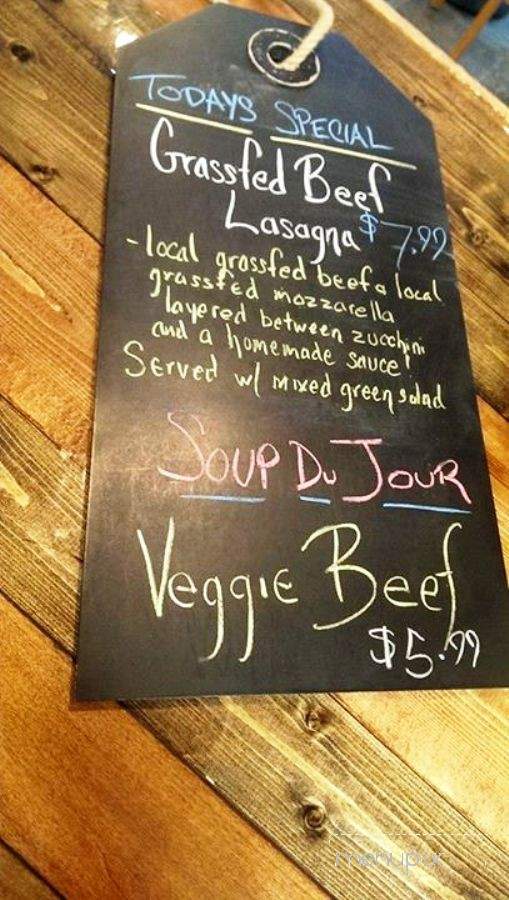 TODAYS SPECIAL
Grassfed Beef
Lasagna $7.99
-local grassfed beef & local
grassfed mozzarella
layered between zucchini
and a homemade sauce!
Served w/ mixed green salad
SOUP DU JOUR
Veggie Beef
$5.99